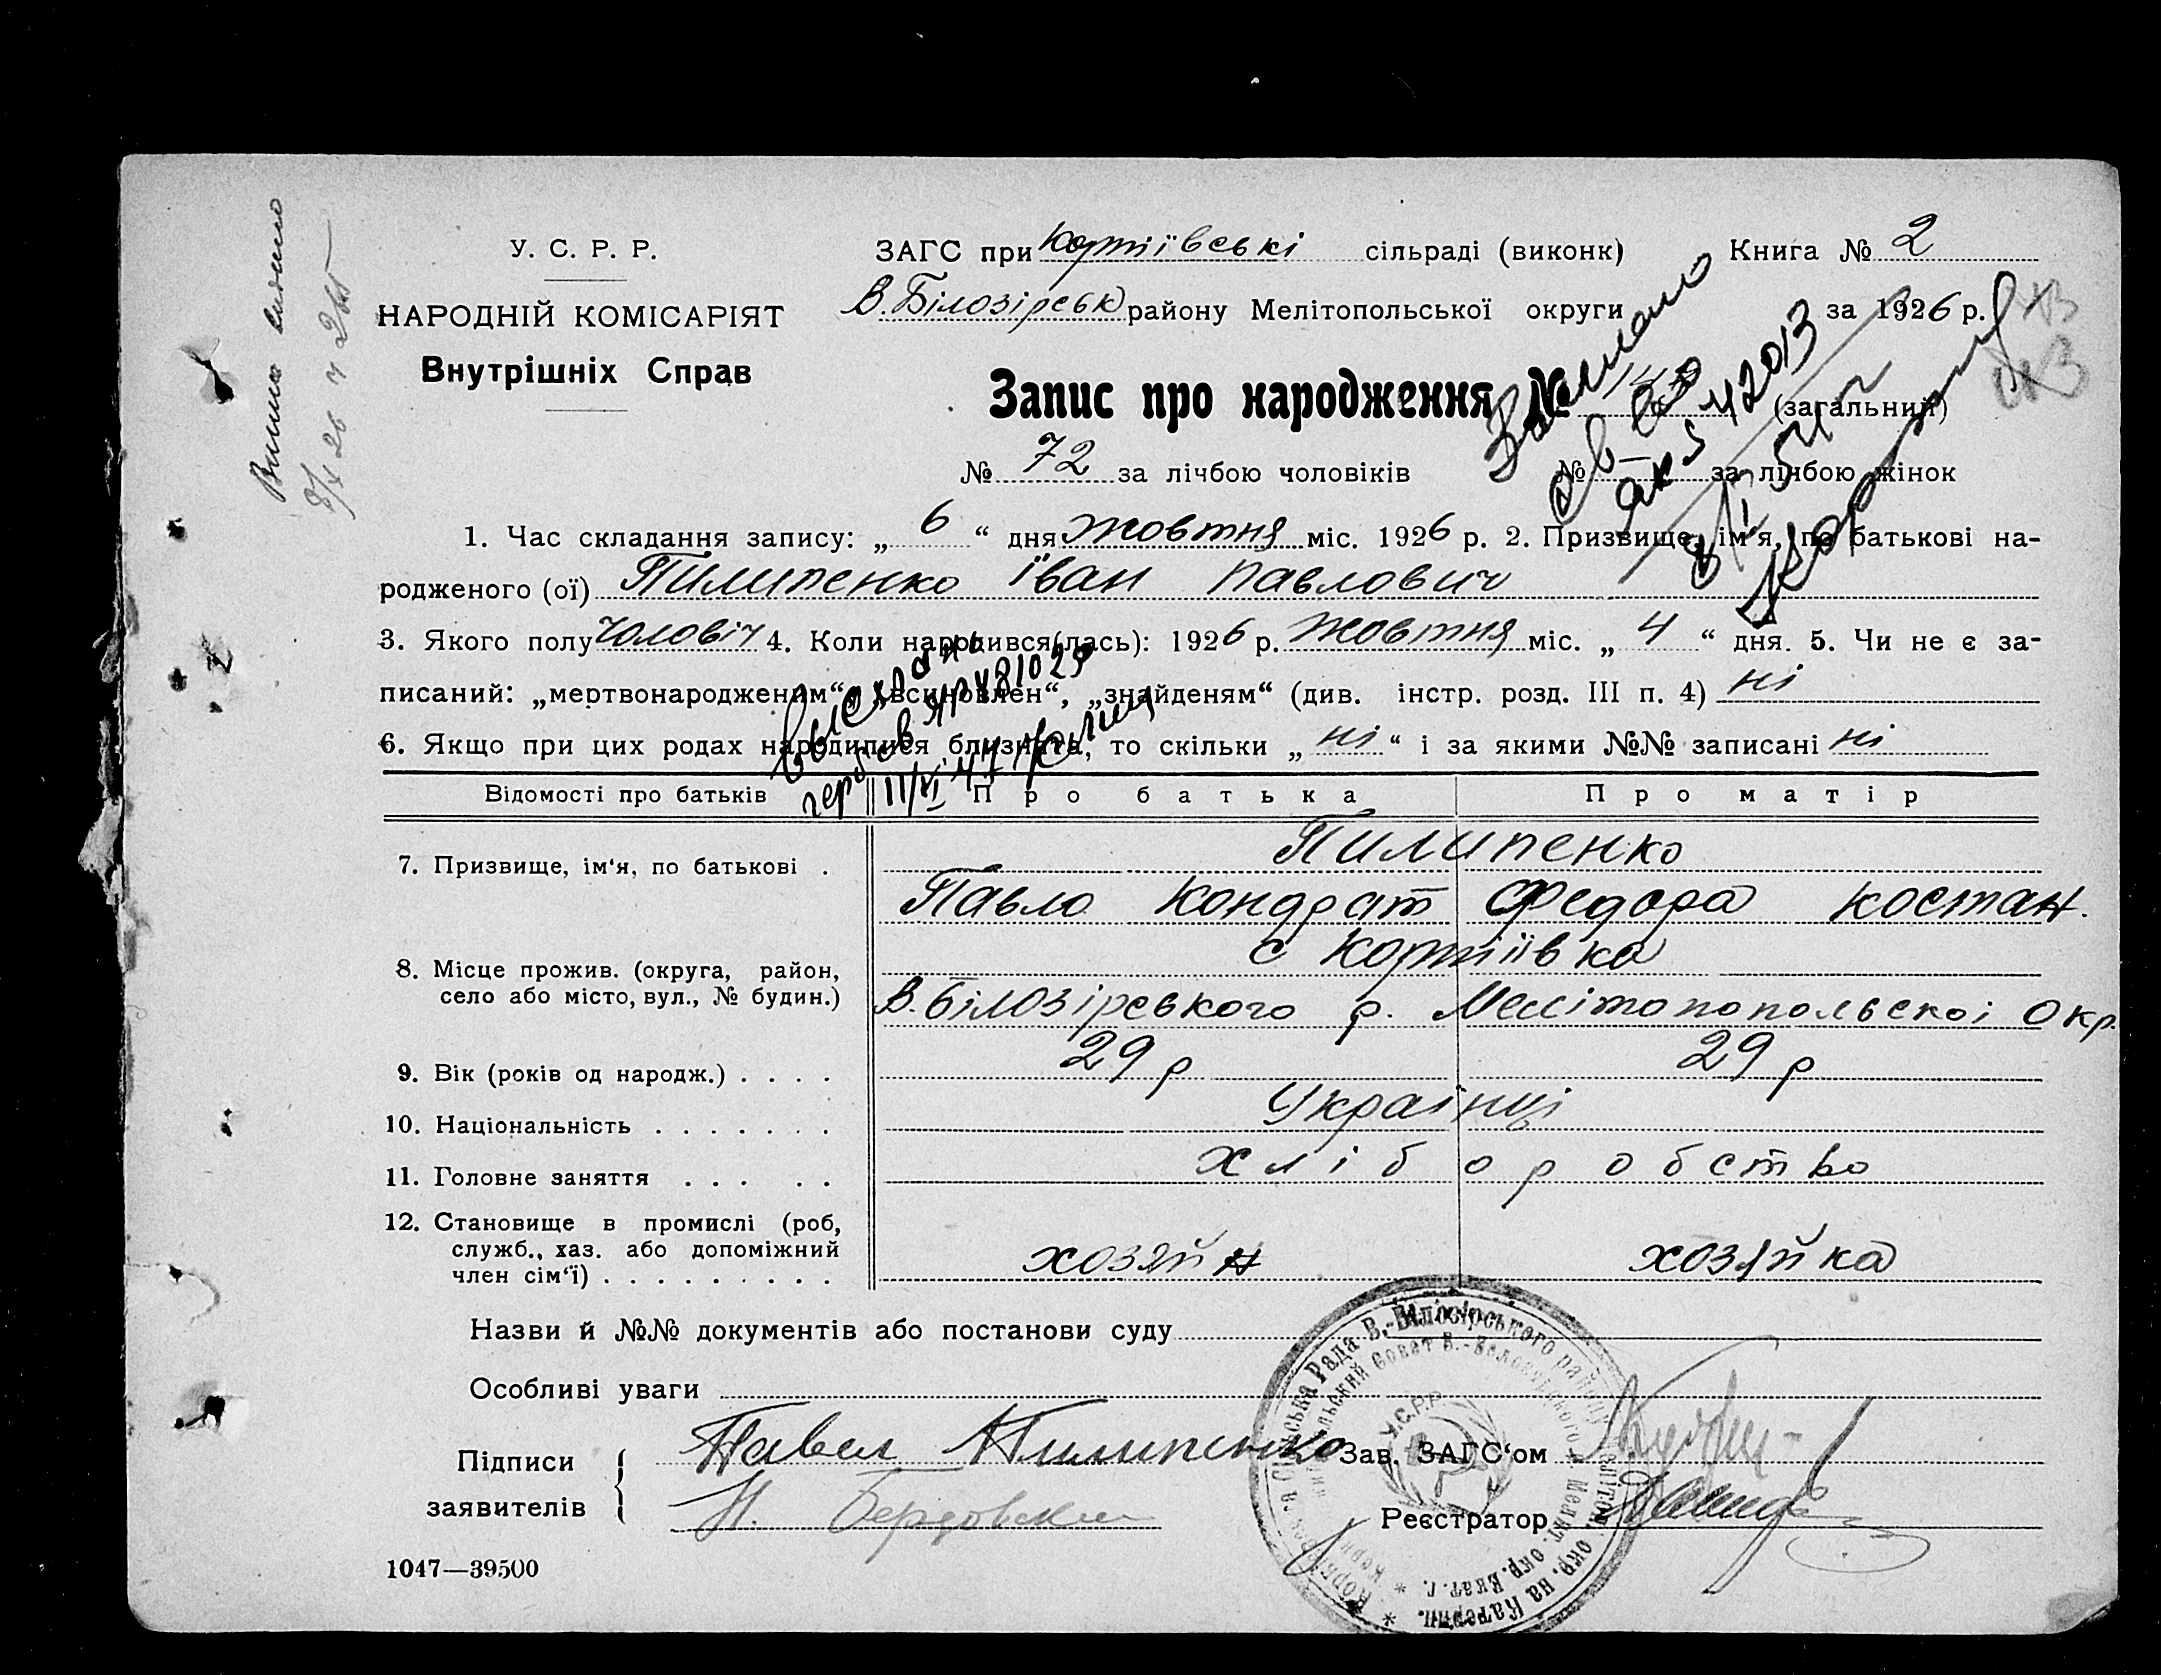 У. С. Р. Р.
НАРОДНІЙ КОМІСАРІЯТ
Внутрішніх Справ
ЗАГС при Кортіївські сільраді (виконк) Книга № 2
В. Білозірськ району Мелітопольської округи за 1926 р.
Запис про народження № (загальний)
№ 72 за лічбою чоловіків № — за лічбою жінок
1. Час складання запису: „ 6 “ дня жовтня міс. 1926 р. 2. Призвище, ім'я, по батькові на-
родженого (ої) Пилипенко Іван Павлович
3. Якого полу чоловіч 4. Коли народився(лась): 1926 р. жовтня міс. „ 4 “ дня. 5. Чи не є за-
писаний: „мертвонародженим“, „всиновлен“, „знайденям“ (див. інстр. розд. III п. 4) ні
6. Якщо при цих родах народилися близнята, то скільки „ ні “ і за якими №№ записані ні
42013
11/VI 47
Відомості про батьків Про батька Про матір
7. Призвище, ім'я, по батькові . Пилипенко
Павло Кондрат Федора Костан.
8. Місце прожив. (округа, район,
село або місто, вул., № будин.)
с Кортіївка
В. Білозірського р. Мелітопопольскоі Окр.
9. Вік (років од народж.) . . . . 29 р 29 р
10. Національність . . . . . . . Украінці
11. Головне заняття . . . . . хліборобство
12. Становище в промислі (роб,
служб., хаз. або допоміжний
член сім'ї) . . . . . . . . . хозяйн хозяйка
Назви й №№ документів або постанови суду
Особливі уваги
Підписи
заявителів
Павел Пилипенко
Зав. ЗАГС'ом
Н.
Реєстратор
У.С.Р.Р.
1047—39500